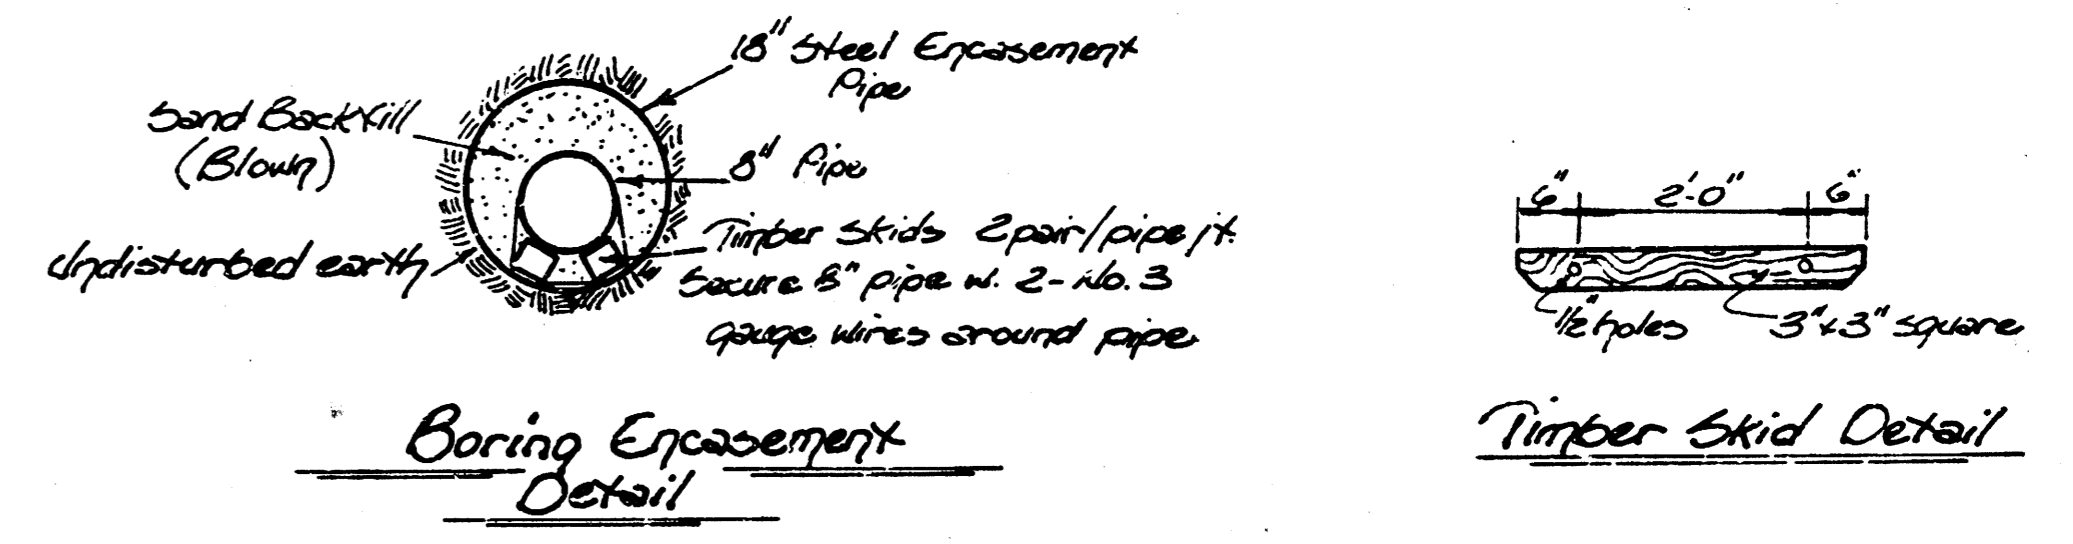 18" Steel Encasement
Pipe
Sand Backfill
(Blown)
8" Pipe
Timber Skids 2pair/pipe jt.
Secure 8" pipe w. 2-No. 3
gauge wires around pipe
Undisturbed earth
Boring Encasement
Detail
6" 2'-0" 6"
1/2" holes
3"x3" square
Timber Skid Detail